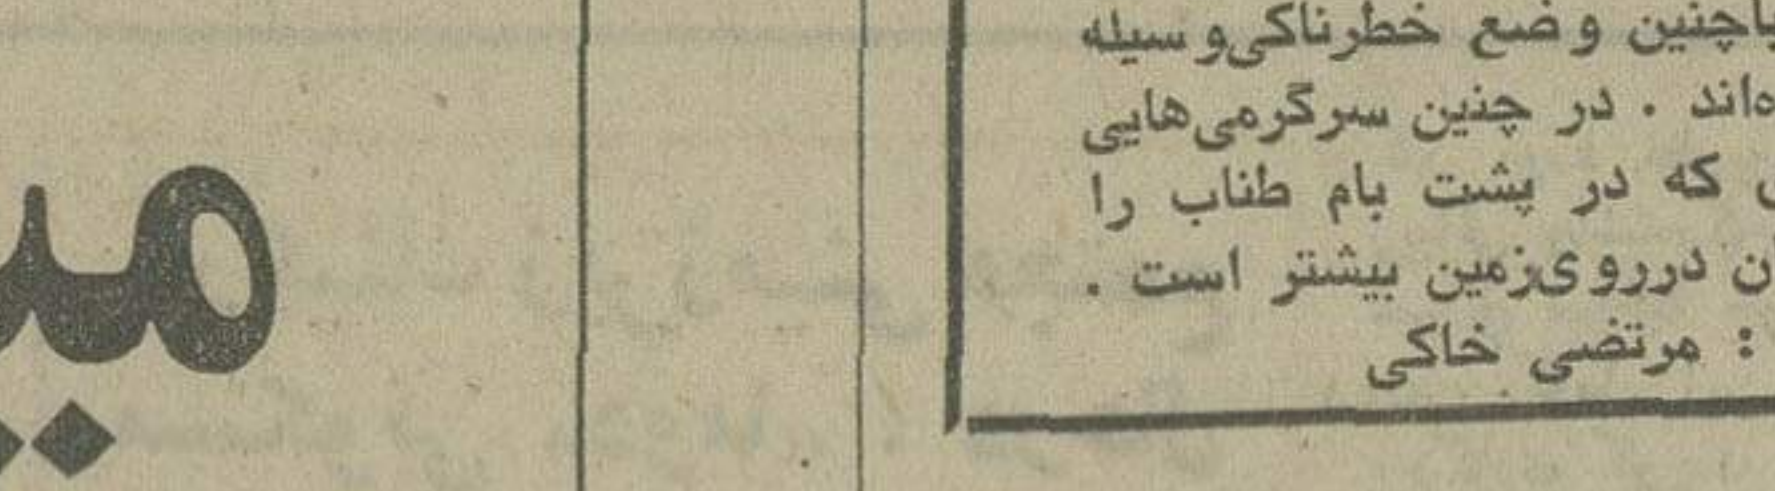 باچنین وضع خطرناکی‌وسیله
در چنین سرگرمی‌هایی
که در پشت بام طناب را
درروی‌زمین بیشتر است .
: مرتضی خاکی